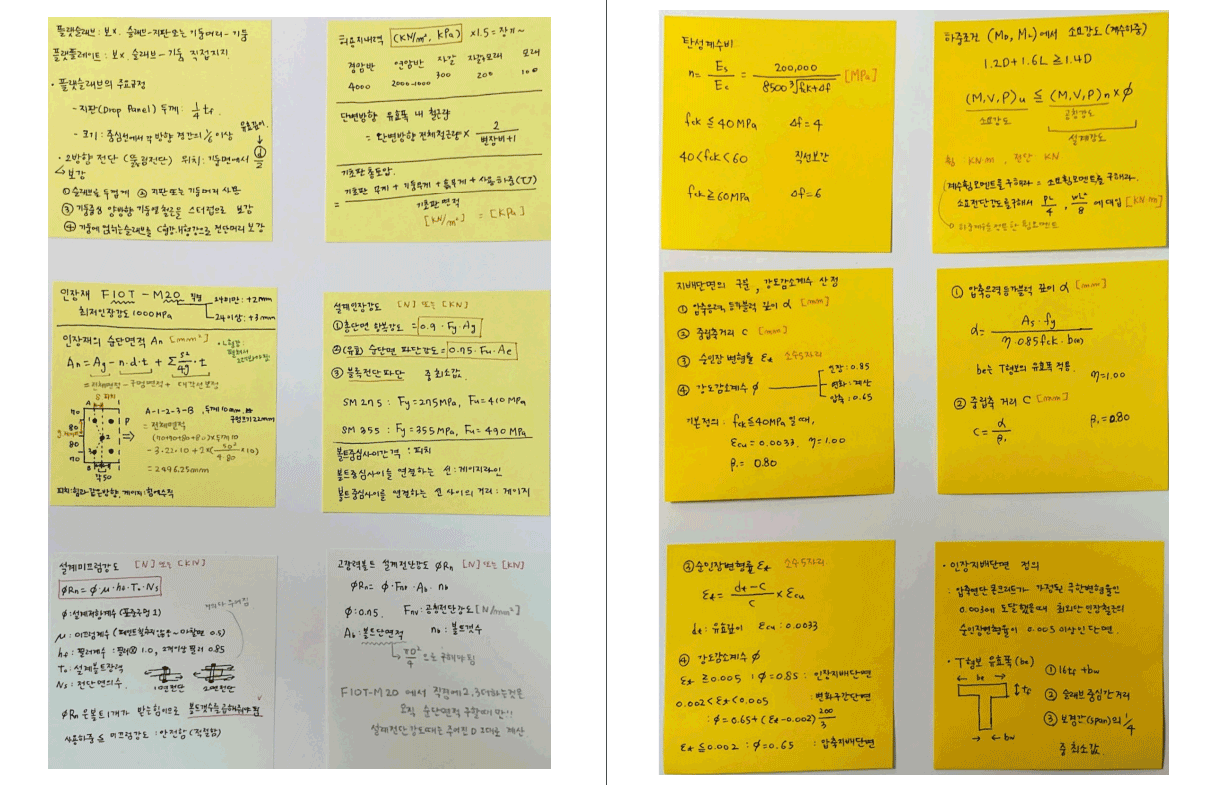 플랫슬래브 : 보x. 슬래브-지판또는 기둥머리-기둥
플랫플레이트 : 보x. 슬래브-기둥 직접지지
· 플랫슬래브의 주요규정
- 지판(Drop Panel) 두께 : 1/4 tf
- 크기 : 중심선에서 각 방향 경간의 1/6 이상
유효깊이
· 2방향 전단 (뚫림전단) 위치 : 기둥면에서 d/2
보강
① 슬래브를 두껍게 ② 지판 또는 기둥머리 사용
③ 기둥중심 양방향 기둥열 철근을 스터럽으로 보강
④ 기둥에 얹히는 슬래브를 C형강, H형강으로 전단머리 보강
허용지내력 (KN/m², KPa) x1.5 = 장기~
경암반 연암반 자갈 자갈+모래 모래
4000 2000~1000 300 200 100
단변방향 유효폭 내 철근량
= 단변방향 전체철근량 × 2/변장비+1
기초판 총토압
= 기초판 무게 + 기둥무게 + 흙무게 + 사용하중(D+L) / 기초판면적
[KN/m²] = [KPa]
인장재 F10T - M20 직경 24미만 : +2mm
24이상 : +3mm
최저인장강도 1000MPa
인장재의 순단면적 An [mm²]
An = Ag - n·d·t + Σ s²/4g · t
= 전체면적 - 구멍면적 +
A S 피치
70
80
80
70
P
1
2
3
B
50
A-1-2-3-B, 두께10mm
구멍크기 22mm
= 전체면적
(70+80+80+70)×두께10
- 3·22·10 + 2×(50²/4·80 ×10)
= 2496.25mm
피치:힘과 같은방향, 게이지:힘에수직
설계인장강도 [N] 또는 [KN]
① 총단면 항복강도 = 0.9 · Fy · Ag
②(유효) 순단면 파단강도 = 0.75 · Fu · Ae
③ 블록전단파단 중 최소값.
SM 275 : Fy = 275 MPa, Fu = 410 MPa
SM 355 : Fy = 355 MPa, Fu = 490 MPa
볼트중심사이간격 : 피치
볼트중심사이를 연결하는 선 : 게이지라인
볼트중심사이를 연결하는 선 사이의 거리 : 게이지
설계미끄럼강도 [N] 또는 [KN]
ØRn = Ø·μ·hf·To·Ns
Ø : 설계저항계수 (표준구멍 1)
μ : 미끄럼계수
hf : 필러계수 : 필러 1.0, 2개이상 필러 0.85
To : 설계볼트장력
Ns : 전단면의수.
1면전단 2면전단
ØRn 은 볼트1개가 받는힘이므로 볼트갯수를 곱해줘야 됨
사용하중 ≤ 미끄럼강도 : 안전함 (적정함)
고장력볼트 설계전단강도 ØRn [N] 또는 [KN]
ØRn = Ø·Fnv·Ab·nb
Ø : 0.75. Fnv : 공칭전단강도 [N/mm²]
Ab : 볼트단면적 nb : 볼트갯수
πD²/4 으로 구해야 됨
F10T-M20 에서 직경에 2,3더하는것은
오직 순단면적 구할때만!!
설계전단강도때는 주어진 D 그대로 계산
탄성계수비
n = Es/Ec = 200,000 / 8500 ³√fck+Δf [MPa]
fck ≤ 40MPa Δf = 4
40 < fck < 60 직선보간
fck ≥ 60MPa Δf = 6
하중조건 (MD, ML)에서 소요강도 (계수하중)
1.2D + 1.6L ≥ 1.4D
(M,V,P)u ≤ (M,V,P)n × Ø
소요강도 공칭강도
설계강도
휨 KN·m, 전단 KN
계수휨모멘트를 구해라 = 소요휨모멘트를 구해라.
소요전단강도를구해서 PL/4, wL²/8 에 대입 [KN·m]
지배단면의 구분, 강도감소계수 산정
① 압축응력, 등가블럭 깊이 α [mm]
② 중립축거리 C [mm]
③ 순인장 변형률 Et 소수5자리
④ 강도감소계수 Ø
인장 : 0.85
변화 : 계산
압축 : 0.65
기본정의 : fck ≤ 40MPa 일때,
Ecu = 0.0033, η = 1.00
β1 = 0.80
① 압축응력등가블럭 깊이 α [mm]
α = As·fy / η·0.85fck·bw
be는 T형보의 유효폭 적용.
η = 1.00
② 중립축 거리 C [mm]
C = α/β1
β1 = 0.80
③ 순인장변형률 Et 소수5자리
Et = dt - C / C × Ecu
dt : 유효깊이 Ecu = 0.0033
④ 강도감소계수 Ø
Et ≥ 0.005 : Ø = 0.85 : 인장지배단면
0.002 < Et < 0.005 : 변화구간단면
: Ø = 0.65 + (Et - 0.002) 200/3
Et ≤ 0.002 : Ø = 0.65 : 압축지배단면
· 인장지배단면 정의
: 압축연단 콘크리트가 가정된 극한변형률인
0.0033에 도달했을때 최외단 인장철근의
순인장변형률이 0.005 이상인 단면.
· T형보 유효폭 (be)
be
tf
bw
① 16tf + bw
② 슬래브 중심간 거리
③ 보경간(span)의 1/4
중 최소값